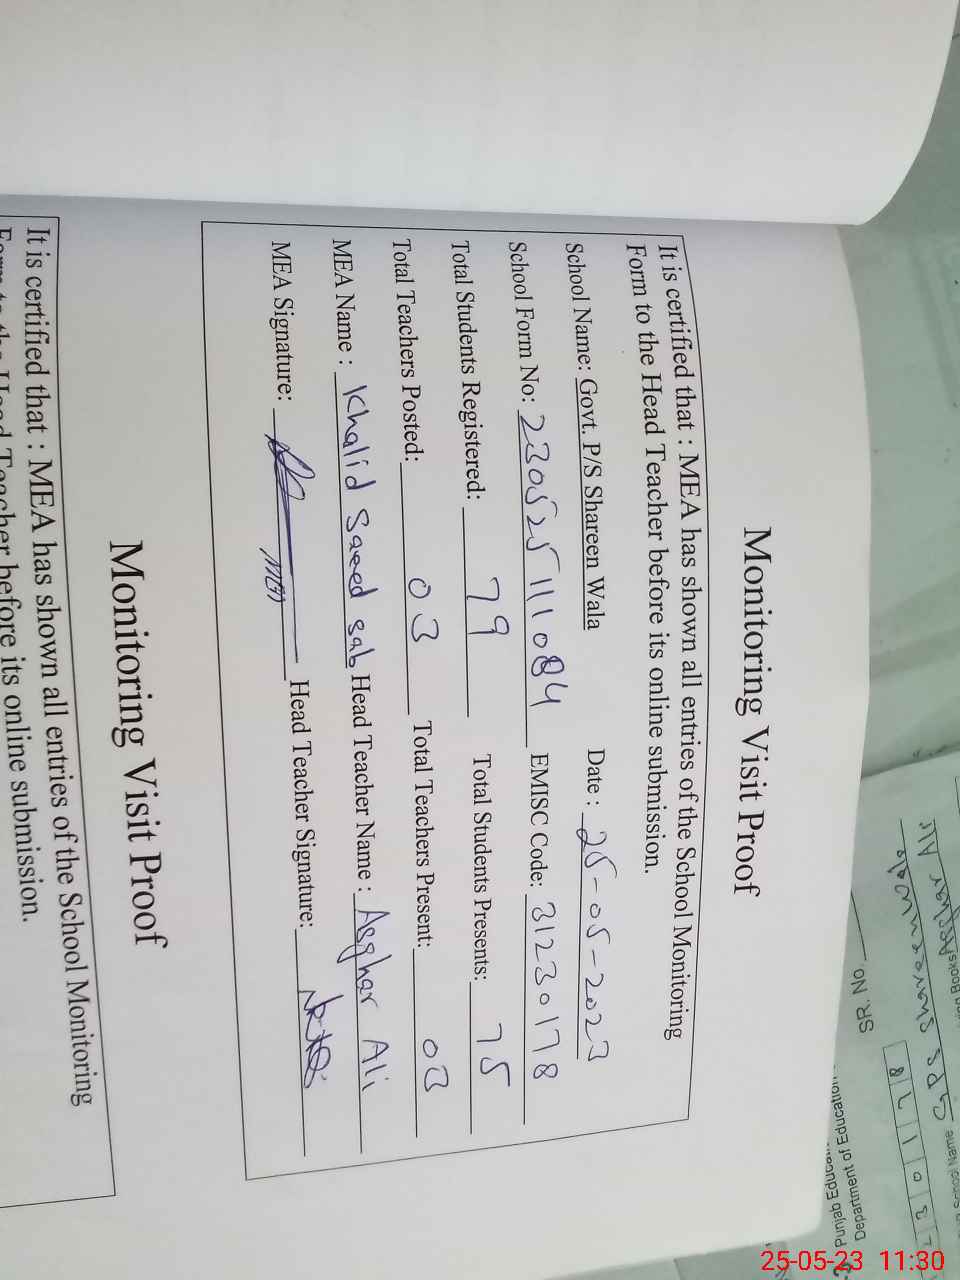 Monitoring Visit Proof
It is certified that : MEA has shown all entries of the School Monitoring
Form to the Head Teacher before its online submission.
School Name: Govt. P/S Shareen Wala Date : 25-05-2023
School Form No: 230525111084 EMISC Code: 31230178
Total Students Registered: 79 Total Students Presents: 75
Total Teachers Posted: 03 Total Teachers Present: 03
MEA Name : Khalid Saeed sab Head Teacher Name : Asghar Ali
MEA Signature: MEA Head Teacher Signature:
Monitoring Visit Proof
It is certified that : MEA has shown all entries of the School Monitoring
Form to the Head Teacher before its online submission.
Punjab
Department of Education
SR. No
30178
School Name GPS Shareenwala
Books Asghar Ali
25-05-23 11:30